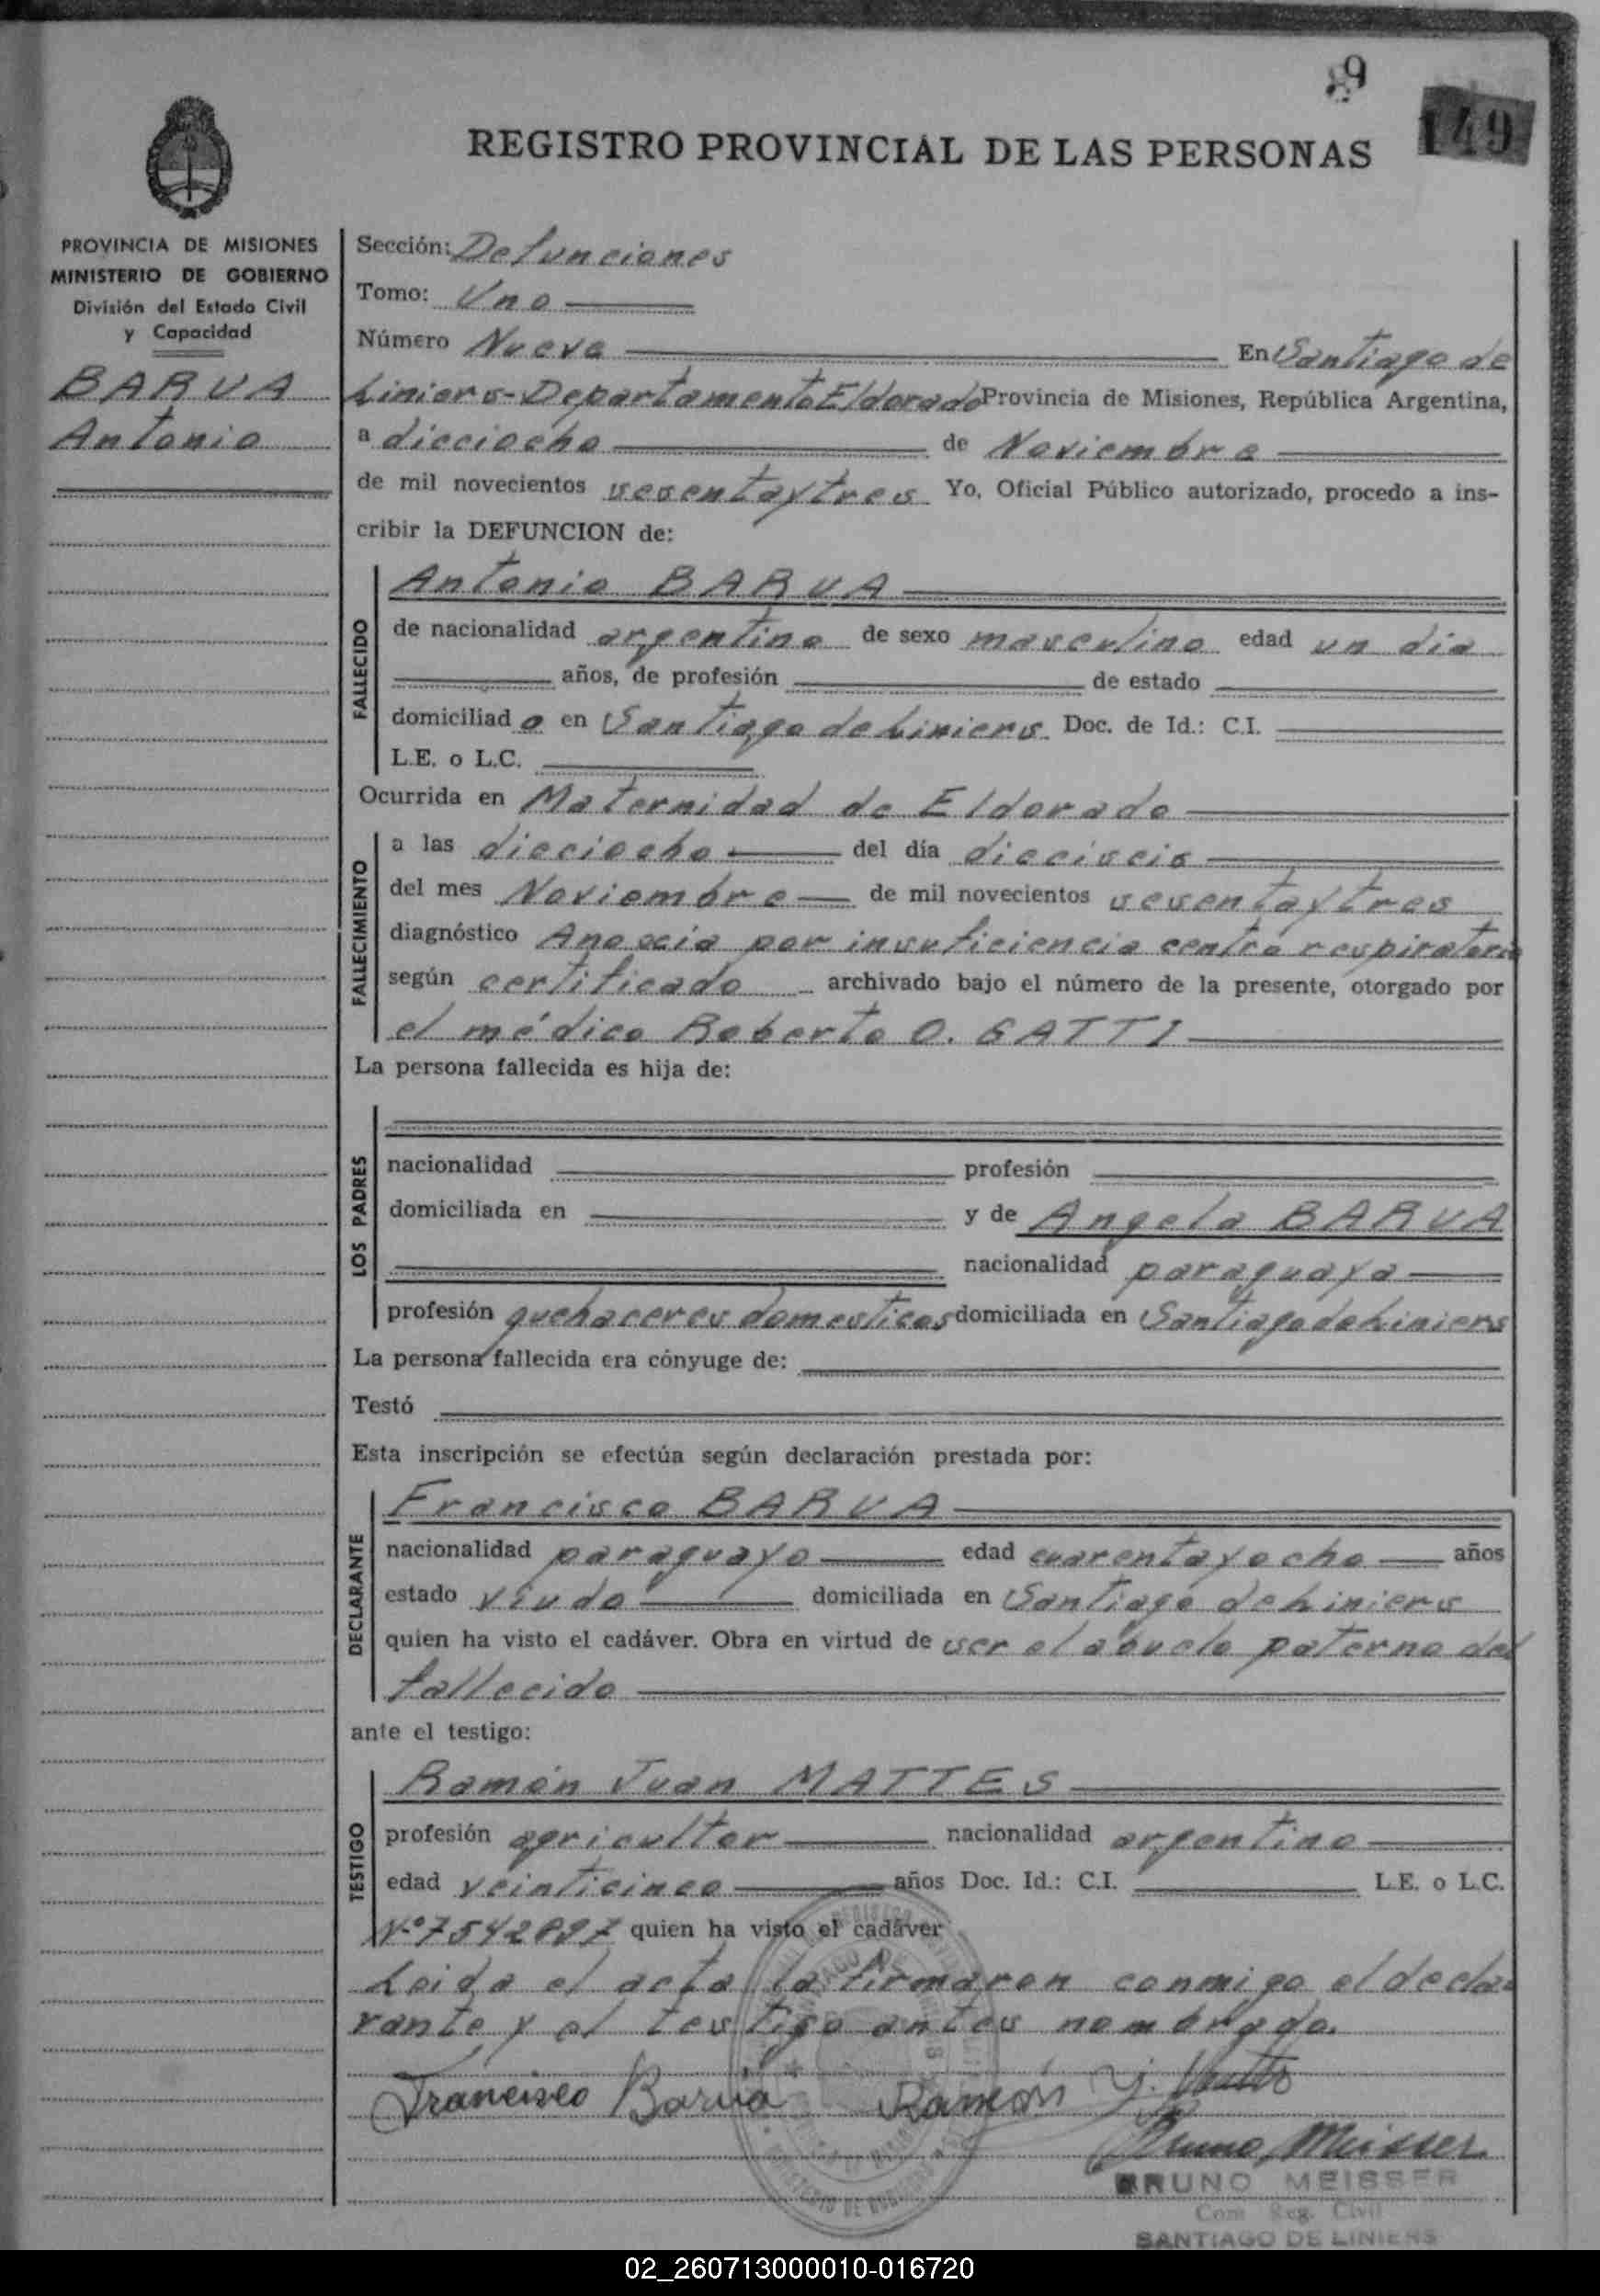 89
149
REGISTRO PROVINCIAL DE LAS PERSONAS
PROVINCIA DE MISIONES
MINISTERIO DE GOBIERNO
División del Estado Civil
y Capacidad
BARUA
Antonio
Sección: Defunciones
Tomo: Uno
Número Nueve En Santiago de
Liniers-Departamento Eldorado Provincia de Misiones, República Argentina,
a dieciocho de Noviembre
de mil novecientos sesentaytres Yo, Oficial Público autorizado, procedo a ins-
cribir la DEFUNCION de:
FALLECIDO
Antonio BARUA
de nacionalidad argentina de sexo masculino edad un dia
años, de profesión de estado
domiciliad o en Santiago de Liniers Doc. de Id.: C.I.
L.E. o L.C.
Ocurrida en Maternidad de Eldorado
FALLECIMIENTO
a las dieciocho del día dieciseis
del mes Noviembre de mil novecientos sesentaytres
diagnóstico Anoxia por insuficiencia centro respiratorio
según certificado archivado bajo el número de la presente, otorgado por
el médico Roberto O. GATTI
La persona fallecida es hija de:
LOS PADRES
nacionalidad profesión
domiciliada en y de Angela BARUA
nacionalidad paraguaya
profesión quehaceres domesticos domiciliada en Santiago de Liniers
La persona fallecida era cónyuge de:
Testó
Esta inscripción se efectúa según declaración prestada por:
DECLARANTE
Francisco BARUA
nacionalidad paraguayo edad cuarentayocho años
estado viudo domiciliada en Santiago de Liniers
quien ha visto el cadáver. Obra en virtud de ser el abuelo paterno del
fallecido
ante el testigo:
TESTIGO
Ramón Juan MATTES
profesión agricultor nacionalidad argentino
edad veinticinco años Doc. Id.: C.I. L.E. o L.C.
Nº 7542897 quien ha visto el cadáver
Leida el acta la firmaron conmigo el decla-
rante y el testigo antes nombrado.
Francisco Barúa Ramón J.
Bruno Meisser
BRUNO MEISSER
Com Reg. Civil
SANTIAGO DE LINIERS
02_260713000010-016720